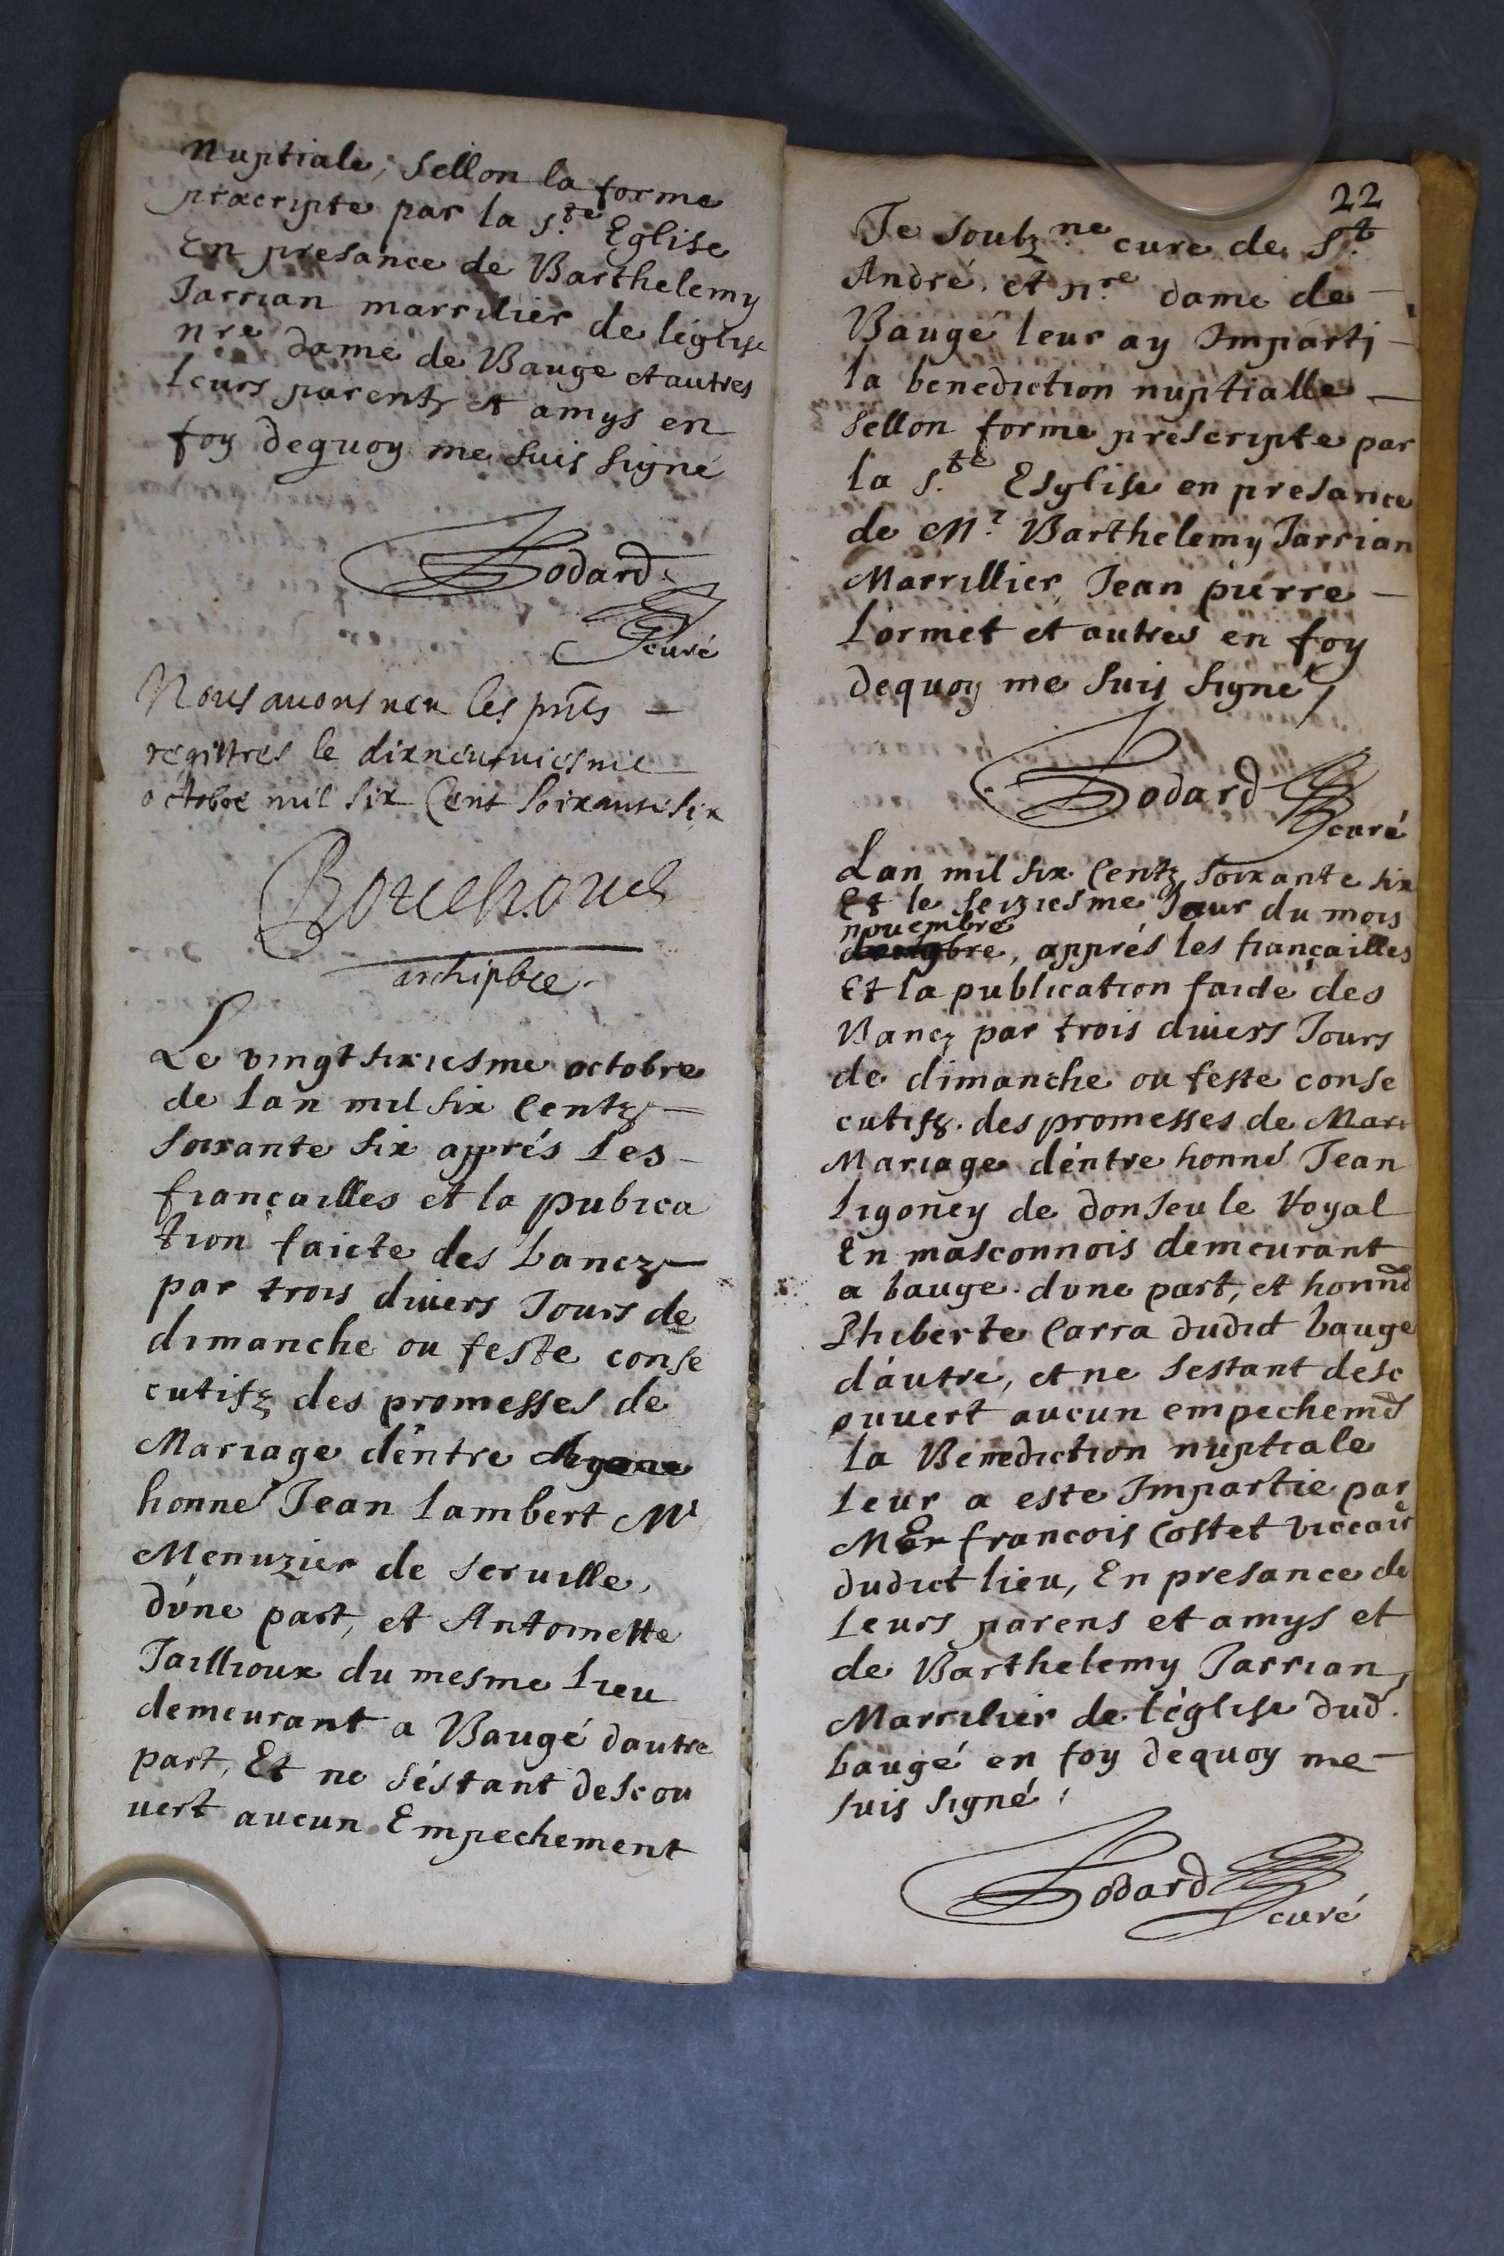 nuptiale, sellon la forme
præcripte par la s.te Eglise
En presance de Barthelemy
Jarrian marrilier de l'eglise
nre dame de Bauge et autres
leurs parentz et amys en
foy dequoy me suis signé
Godard
curé
Nous avons veu les pñts
registres le dixneufviesme
octobre mil six Cent soixante six
archipbre.
Le vingt sixiesme octobre
de lan mil six Centz
soixante six apprés les
fiançailles et la pubica
tion faicte des bancz
par trois divers Jours de
dimanche ou feste conse
cutifz des promesses de
Mariage d'entre
honne Jean Lambert Me
Menuzier de serville,
d'une part, et Antoinette
Jaillioux du mesme lieu
demeurant a Baugé dautre
part, Et ne s'estant descou
vert aucun Empechement
22
Je soubz.ne cure de St
André, et n.re dame de
Baugé leur ay Imparti
la benediction nuptialle
sellon forme prescripte par
la s.te Esglise en presance
de Mr Barthelemy Jarrian
Marrillier Jean pierre
Lormet et autres en foy
dequoy me suis signé
Godard
curé
Lan mil six Centz soixante six
Et le seiziesme Jour du mois
novembre
, apprés les fiançailles
Et la publication faicte des
Bancz par trois divers Jours
de dimanche ou feste conse
cutifz. des promesses de Mari
Mariage d'entre honne Jean
Ligoney de donseu le Royal
En masconnois demeurant
a bauge. dune part, et honne
Phiberte Carra dudict bauge
d'autre, et ne sestant desc
ouvert aucun empechemt
la Benediction nuptiale
leur a este Impartie par
Mer francois Costet viccaire
dudict lieu, En presance de
leurs parens et amys et
de Barthelemy Jarrian,
Marrilier de l'église dud.
baugé en foy dequoy me
suis signé.
Godard
curé